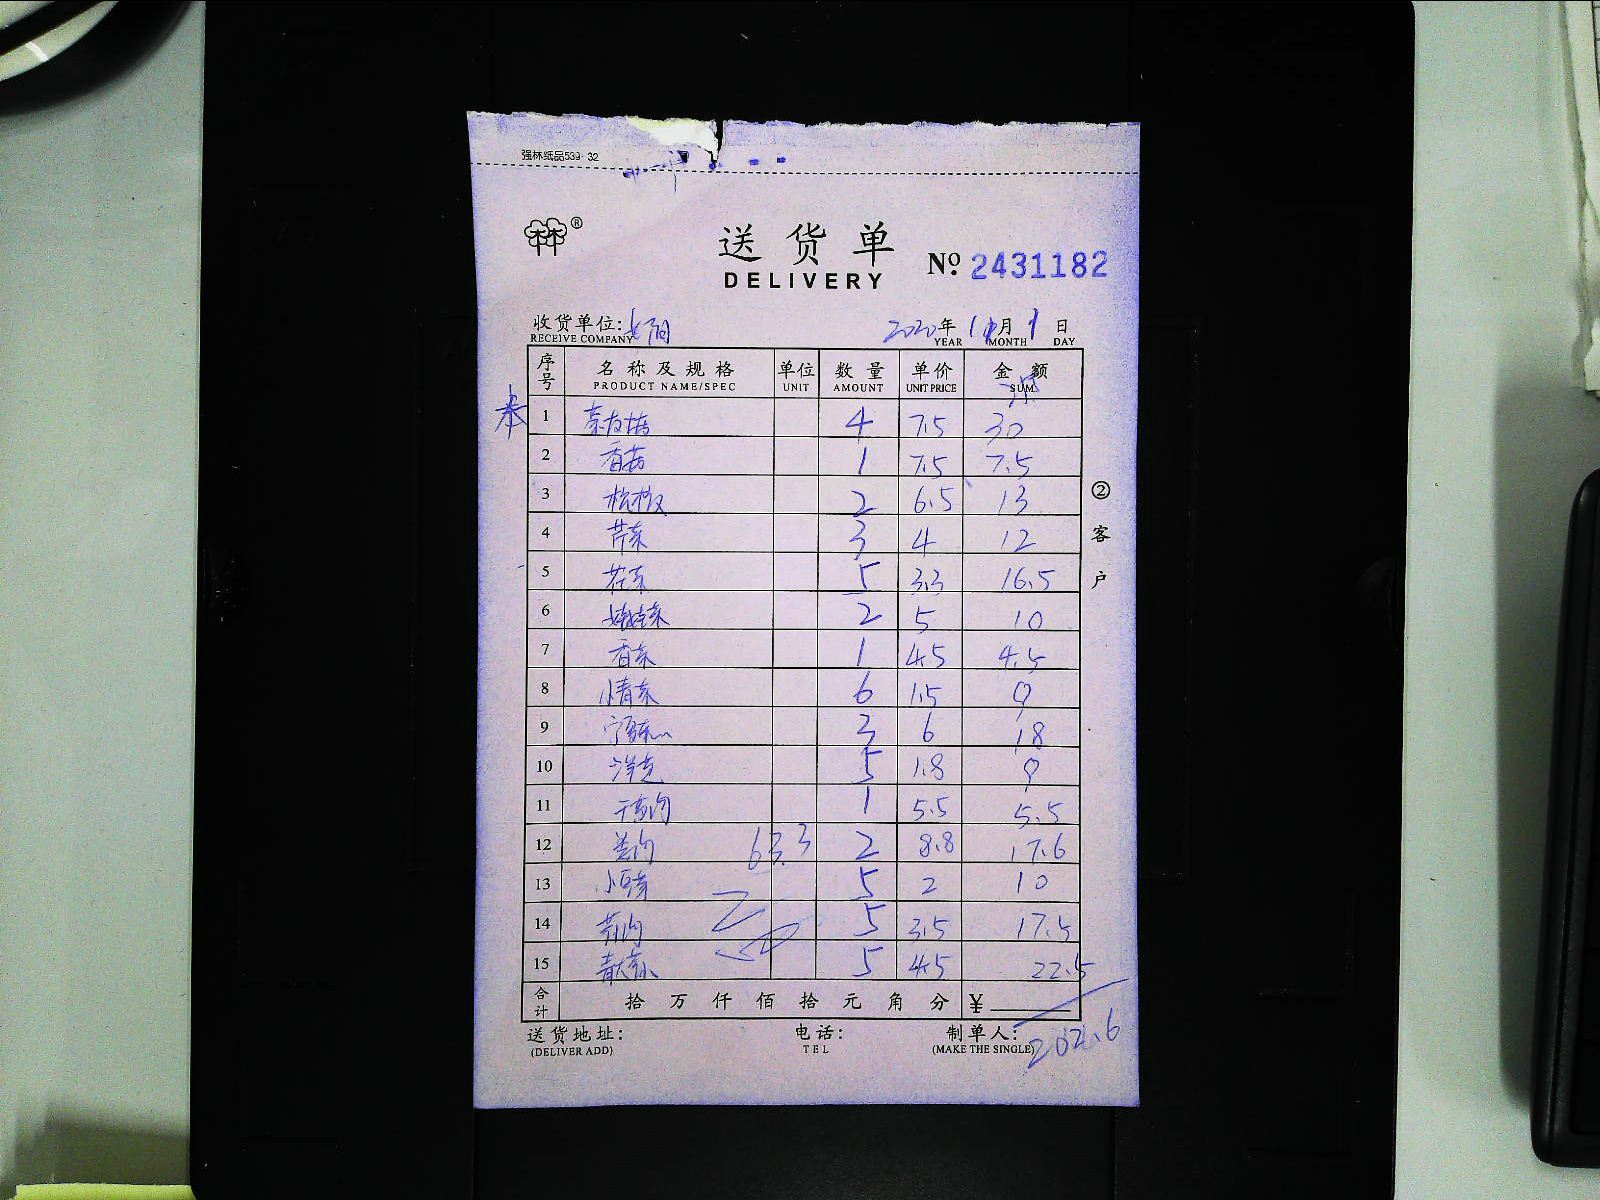 强林纸品539-32
送货单
DELIVERY
№ 2431182
收货单位:
RECEIVE COMPANY
2020年 月 1 日
YEAR MONTH DAY
序号 名称及规格 单位 数量 单价 金额
PRODUCT NAME/SPEC UNIT AMOUNT UNIT PRICE SUM
1 4 7.5 30
2 香菇 1 7.5 7.5
3 杭椒 2 6.5 13
4 芹菜 3 4 12
5 3.3 16.5
6 娃娃菜 2 5 10
7 香菜 1 4.5 4.5
8 小青菜 6 1.5 9
9 3 6 18
10 5 1.8 9
11 1 5.5 5.5
12 63.3 2 8.8 17.6
13 5 2 10
14 5 3.5 17.5
15 5 4.5 22.5
合计 拾 万 仟 佰 拾 元 角 分 ¥
送货地址: 电话: 制单人:
(DELIVER ADD) TEL (MAKE THE SINGLE)
202.6
②客户